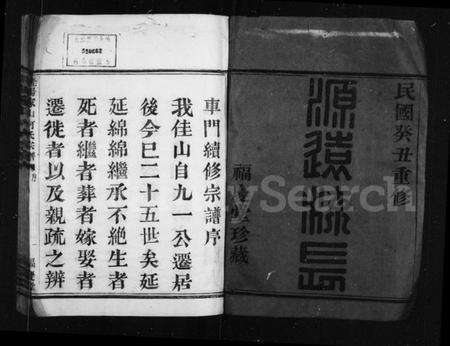 民國癸丑重修
源遠流長
福堂珍藏
車門續修宗譜序
我佳山自九一公遷居
後今已二十五世矣延
延綿綿繼承不絶生者
死者繼者葬者嫁娶者
遷徙者以及親疏之辨